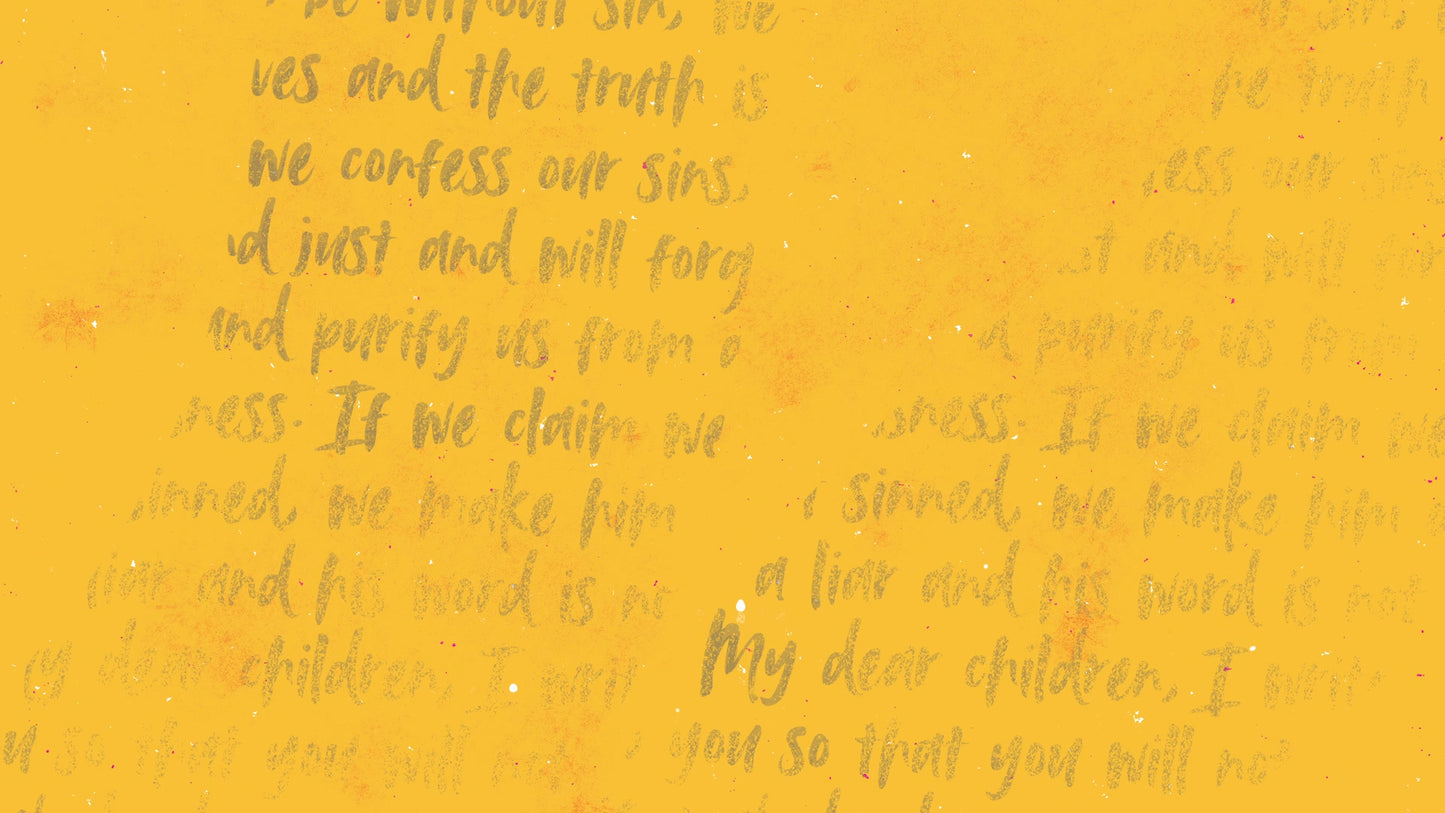 be without sin, we
ves and the truth is
we confess our sins,
d just and will forg
and purify us from
ness. If we claim we
inned, we make him
liar and his word is no
y dear children, I writ
u so that you will not
sins
he truth
ess our sins
t and will for
purify us from
sness. If we claim we
sinned, we make him
a liar and his word is not
My dear children, I write
you so that you will not